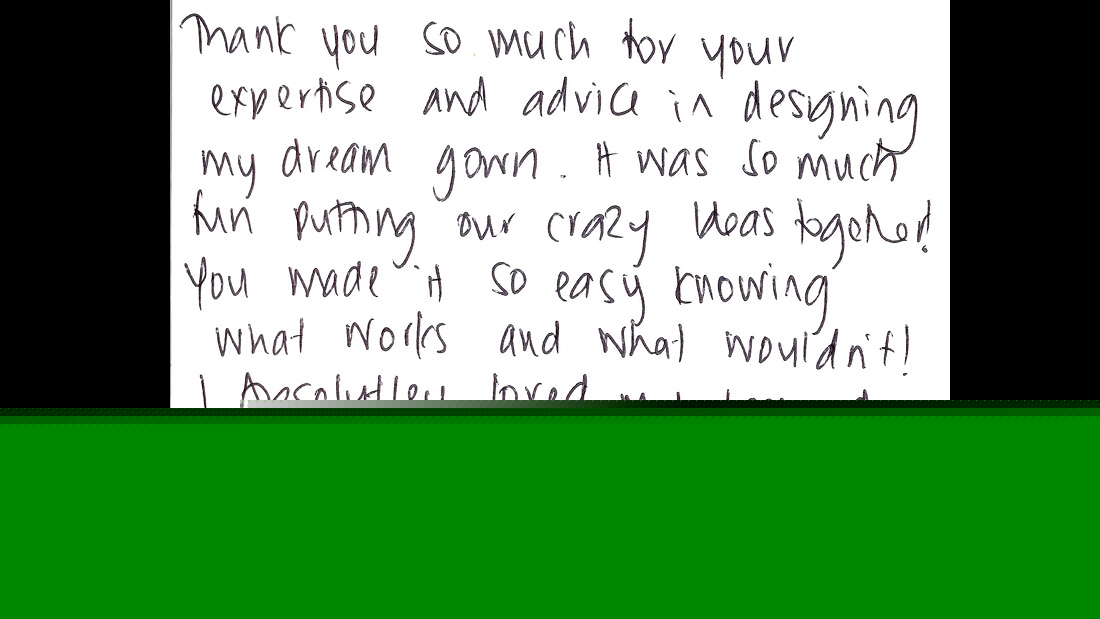 Thank you so much for your
expertise and advice in designing
my dream gown. It was so much
fun putting our crazy ideas together!
You made it so easy knowing
what works and what wouldn't!
I Absolutley loved